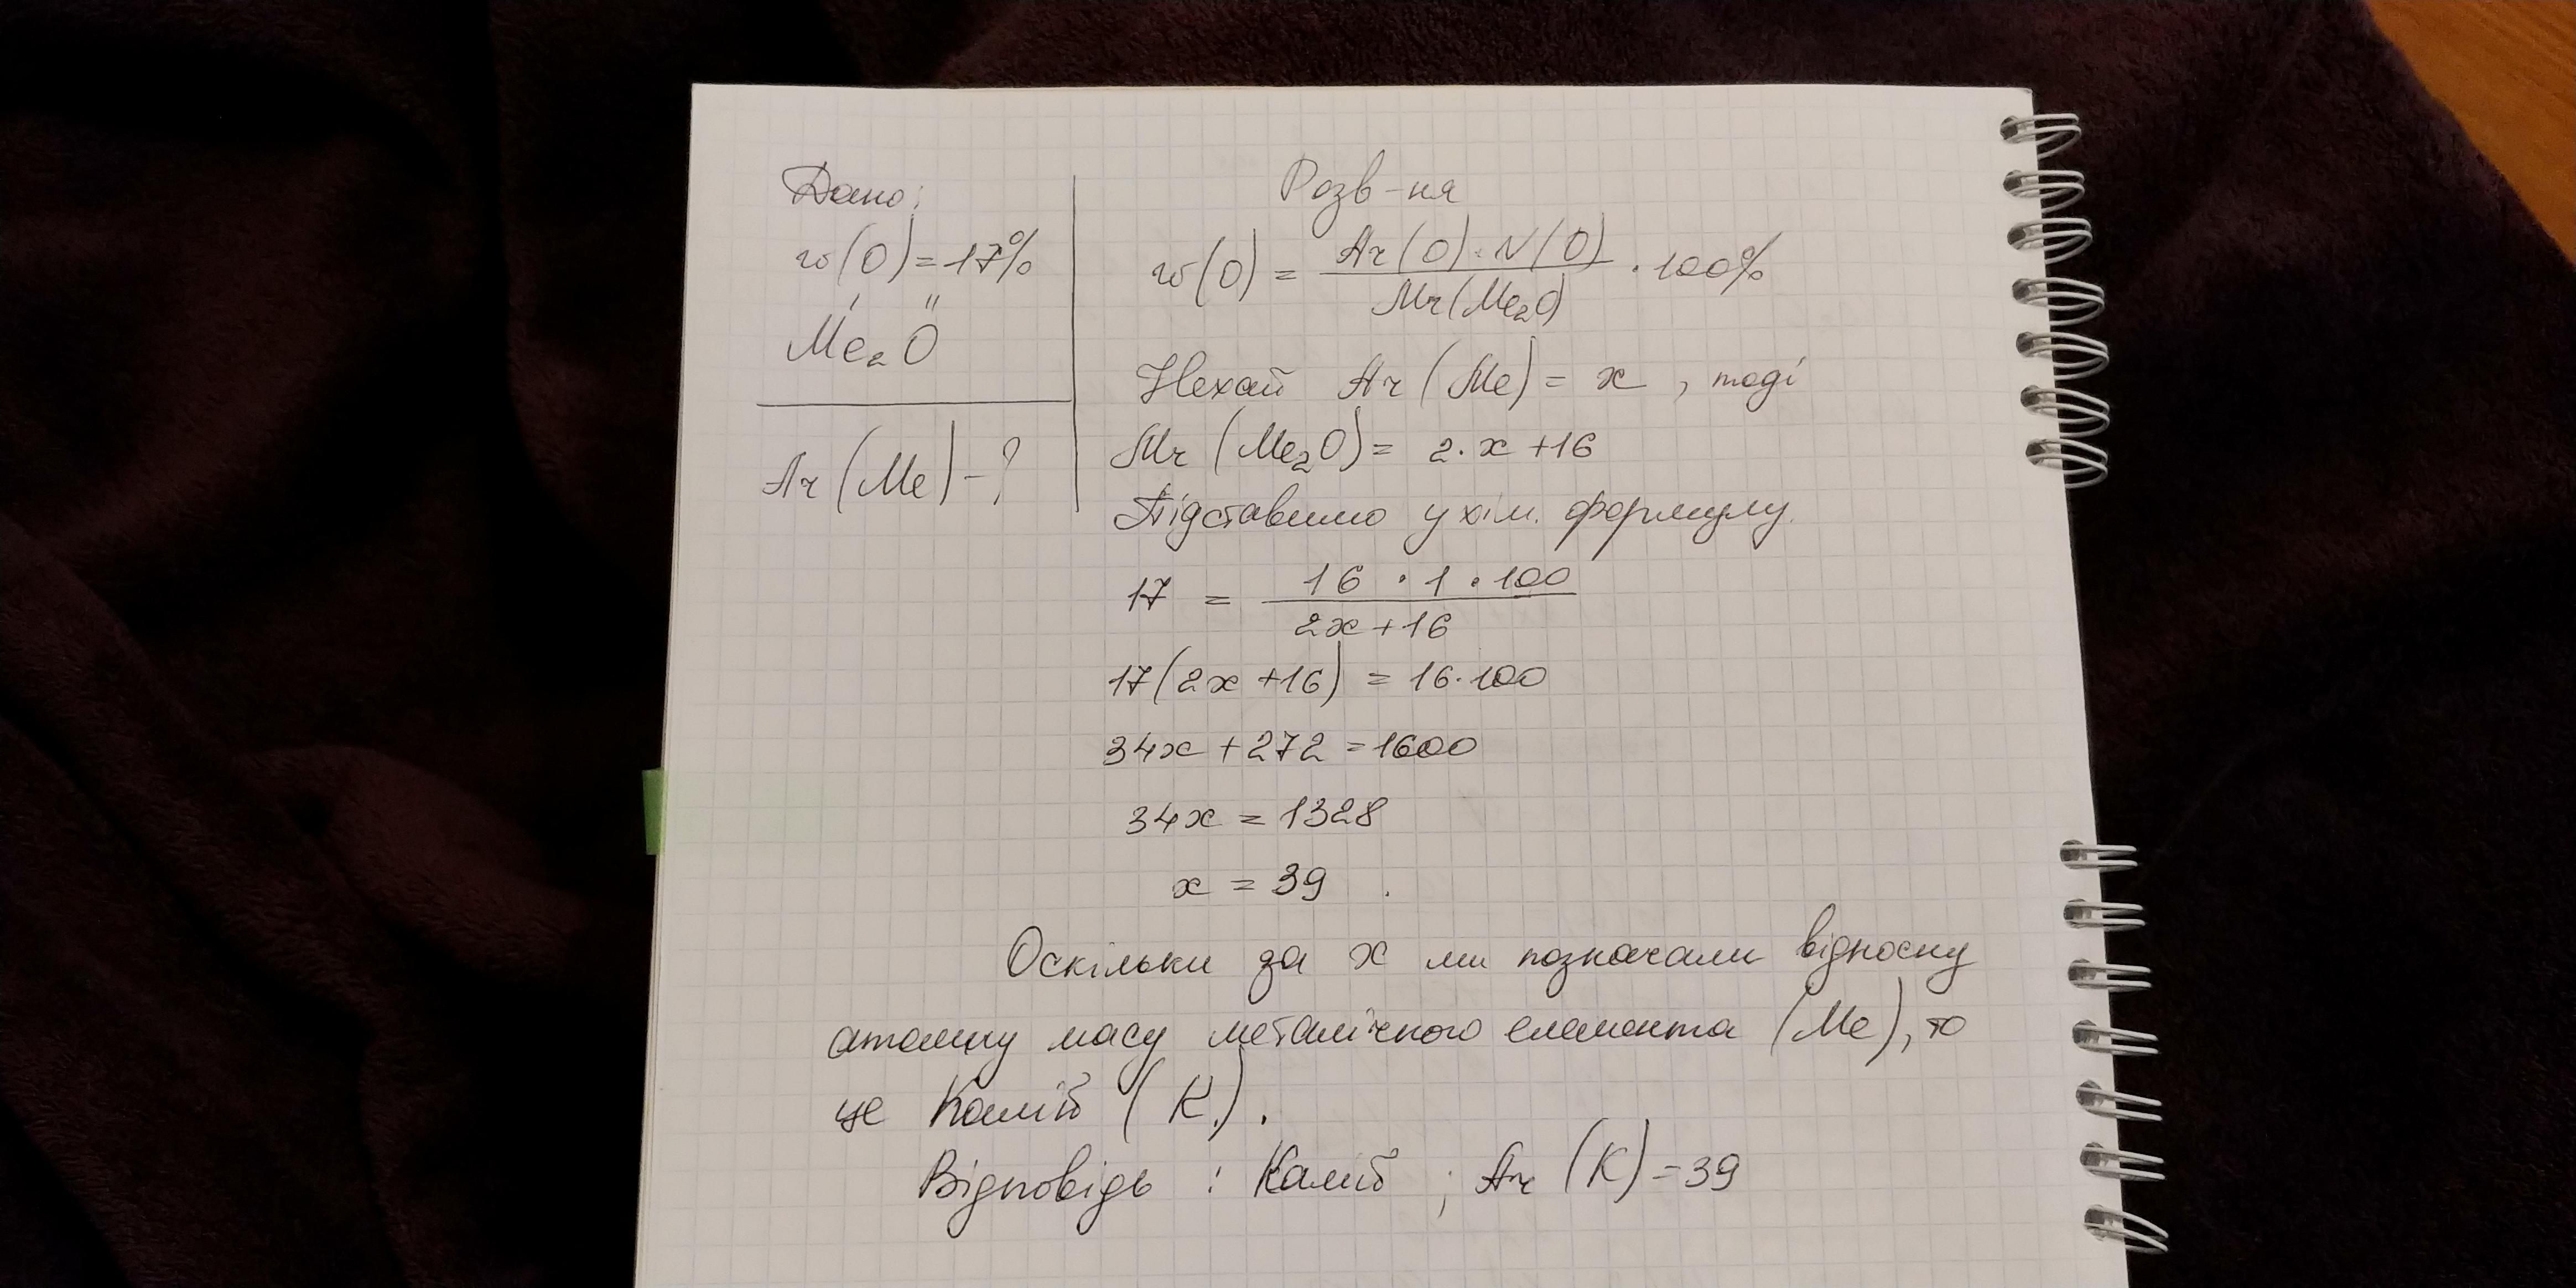 Дано:
w(O) = 17%
I II
Me₂O
Ar(Me) - ?
Розв-ня
w(O) = Ar(O) · N(O) / Mr(Me₂O) · 100%
Нехай Ar(Me) = x , тоді
Mr(Me₂O) = 2·x + 16
Підставимо у хім. формулу.
17 = 16 · 1 · 100 / 2x + 16
17(2x + 16) = 16·100
34x + 272 = 1600
34x = 1328
x = 39 .
Оскільки за x ми позначали відносну
атомну масу металічного елемента (Me), то
це Калій (K).
Відповідь : Калій ; Ar(K) = 39